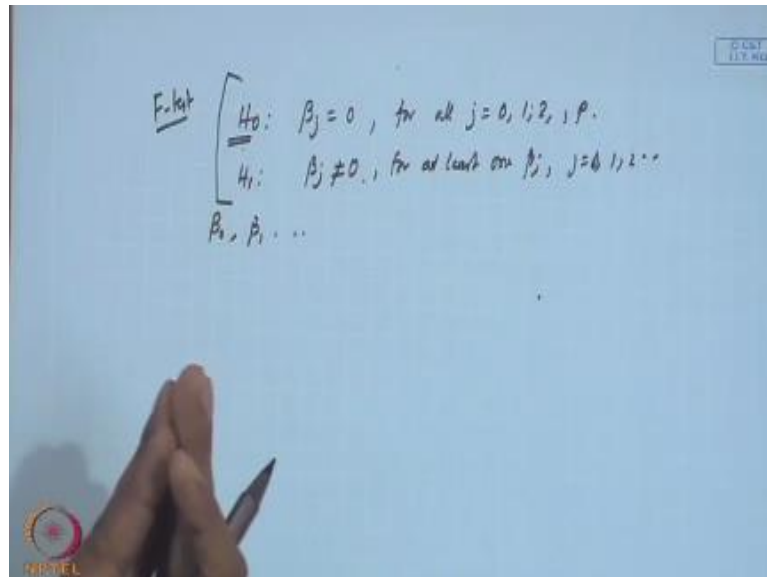 F-test
H0: βj = 0, for all j = 0, 1, 2, , p.
H1: βj ≠ 0., for at least one βj, j = 1, 2 ..
β0, β1 . ..
NPTEL